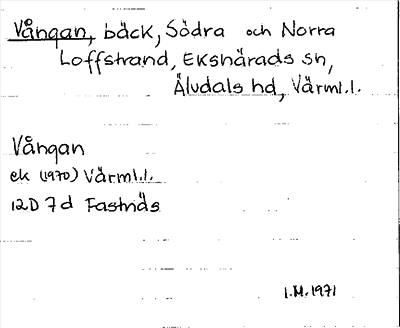 Vångan, bäck, Södra och Norra
Loffstrand, Ekshärads sn,
Älvdals hd, Värml.l.
Vångan
ek (1970) Värml.l.
12D 7d Fastnäs
I.M.1971